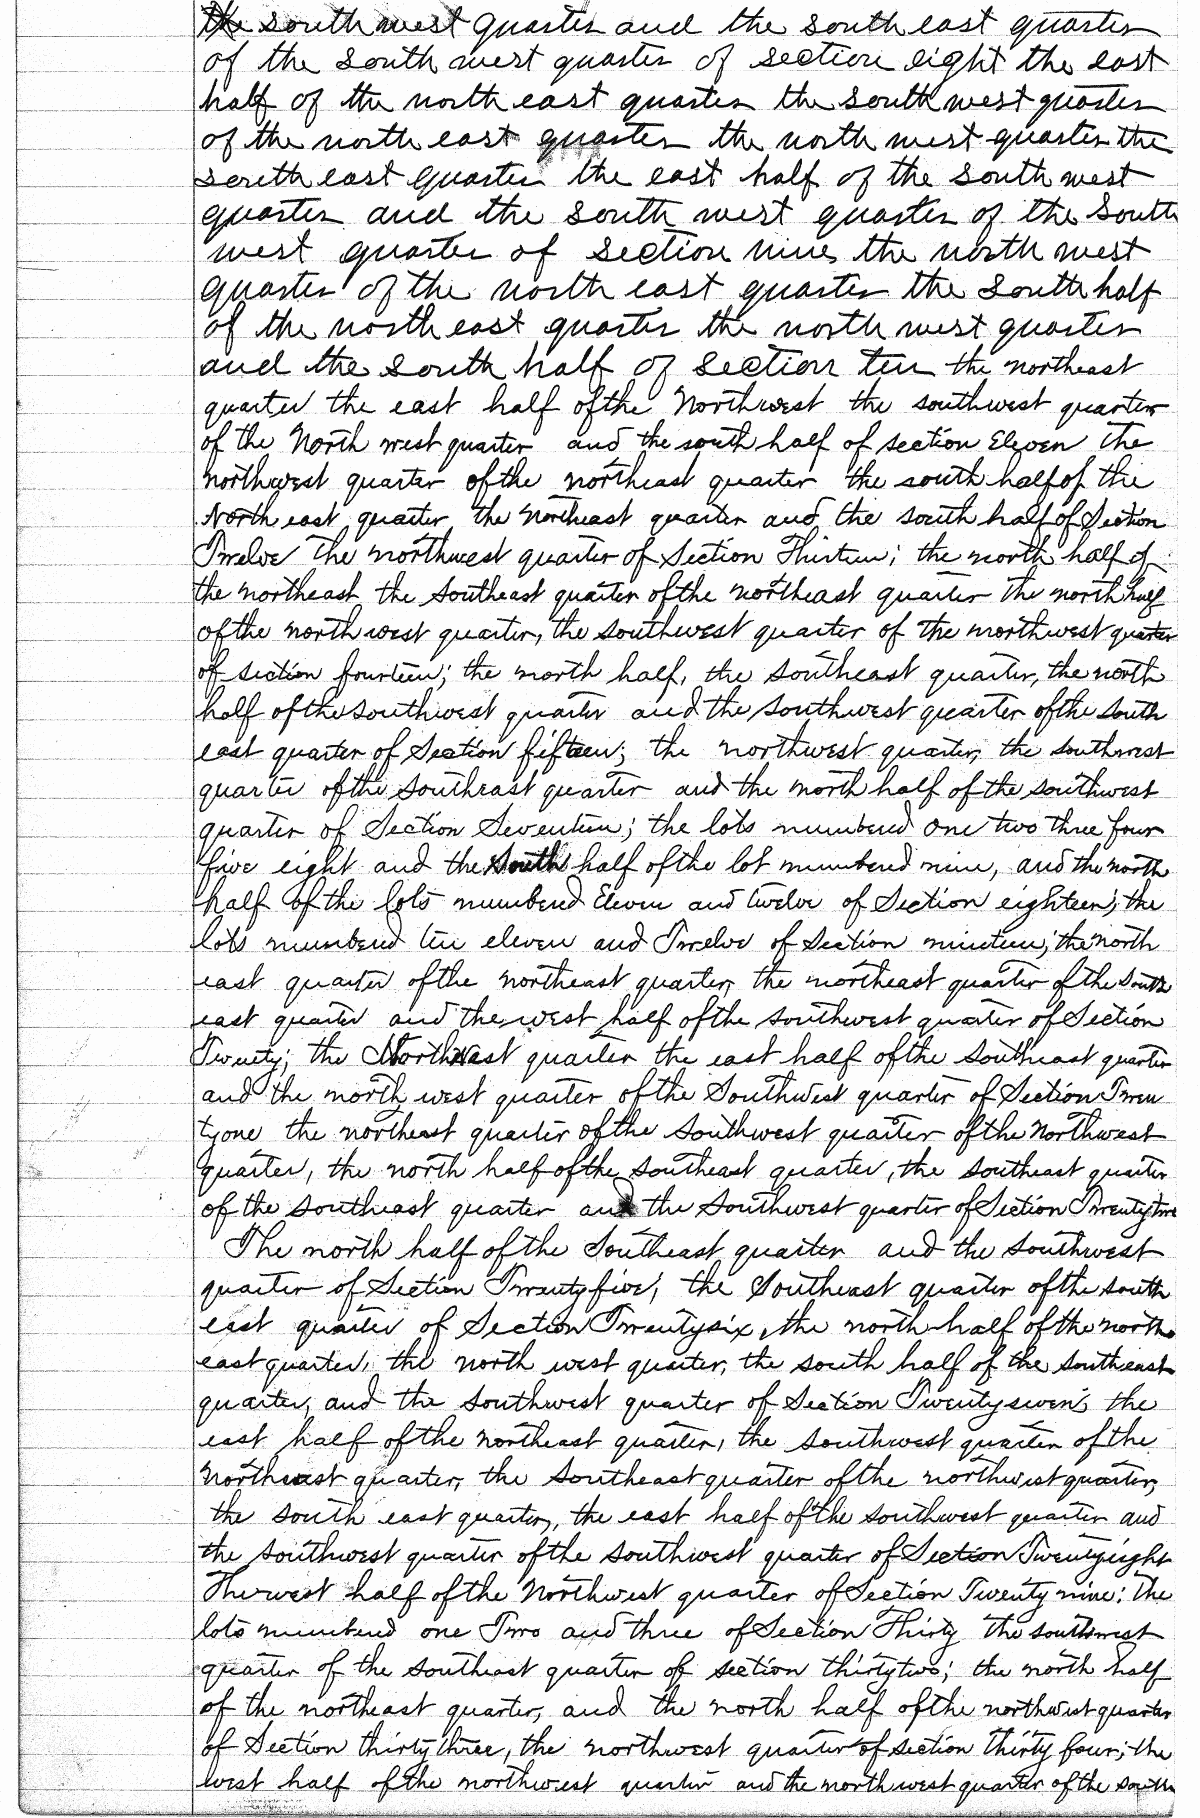 the south west quarter and the south east quarter
of the south west quarter of section eight the east
half of the north east quarter the south west quarter
of the north east quarter the north west quarter the
south east quarter the east half of the south west
quarter and the south west quarter of the south
west quarter of section nine the north west
quarter of the north east quarter the south half
of the north east quarter the north west quarter
and the south half of section ten the northeast
quarter the east half of the Northwest the southwest quarter
of the North west quarter and the south half of section Eleven The
northwest quarter of the northeast quarter the south half of the
North east quarter the Northeast quarter and the south half of Section
Twelve The northwest quarter of Section Thirteen; the north half of
the northeast the Southeast quarter of the northeast quarter The north half
of the north west quarter, the southwest quarter of the northwest quarter
of section fourteen; the north half, the southeast quarter, the north
half of the southwest quarter and the southwest quarter of the south
east quarter of Section fifteen; the northwest quarter, the southwest
quarter of the southeast quarter and the north half of the southwest
quarter of Section Seventeen; the lots numbered one two three four
five eight and the South half of the lot numbered nine, and the north
half of the lots numbered Eleven and twelve of Section eighteen; the
lots numbered ten eleven and Twelve of Section nineteen; the north
east quarter of the northeast quarter, the northeast quarter of the South
east quarter and the west half of the southwest quarter of Section
Twenty; the quarter the east half of the Southeast quarter
and the north west quarter of the Southwest quarter of Section Twen
tyone the northeast quarter of the southwest quarter of the Northwest
quarter, the north half of the southeast quarter, the southeast quarter
of the southeast quarter and the Southwest quarter of Section Twentytwo
The north half of the Southeast quarter and the southwest
quarter of Section Twentyfive; the Southeast quarter of the south
east quarter of Section Twentysix, the north half of the north
east quarter, the north west quarter, the south half of the southeast
quarter, and the southwest quarter of Section Twentyseven; the
east half of the northeast quarter, the southwest quarter of the
quarter, the Southeast quarter of the northwest quarter,
the south east quarter, the east half of the southwest quarter and
the southwest quarter of the southwest quarter of Section Twentyeight
The west half of the Northwest quarter of Section Twenty nine: The
lots numbered one Two and three of Section Thirty the southwest
quarter of the southeast quarter of section thirtytwo; the north half
of the northeast quarter, and the north half of the northwest quarter
of Section thirty three, the northwest quarter of section thirty four; the
west half of the northwest quarter and the north west quarter of the south